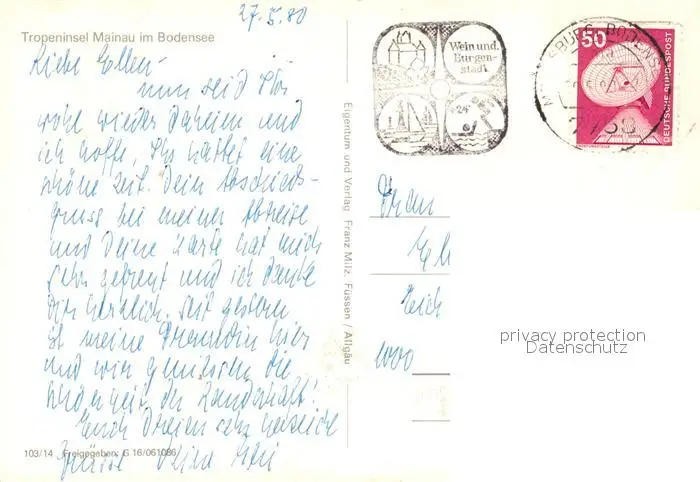 27.5.80
Tropeninsel Mainau im Bodensee
Liebe Ellen –
nun seid Ihr
wohl wieder daheim und
ich hoffe, Ihr hattet eine
schöne Zeit. Dein Abschieds-
gruss bei meiner Abreise
und Deine Karte hat mich
sehr gefreut und ich danke
Dir herzlich. Seit gestern
ist meine Freundin hier
und wir geniessen die
Schönheit der Landschaft!
Euch Dreien sehr herzliche
Grüsse Deine
103/14 Freigegeben: G 16/061086
Eigentum und Verlag Franz Milz, Füssen / Allgäu
Wein und
Burgen-
stadt
50
DEUTSCHE BUNDESPOST
7758
Frau
El
Teich
1000
privacy protection
Datenschutz